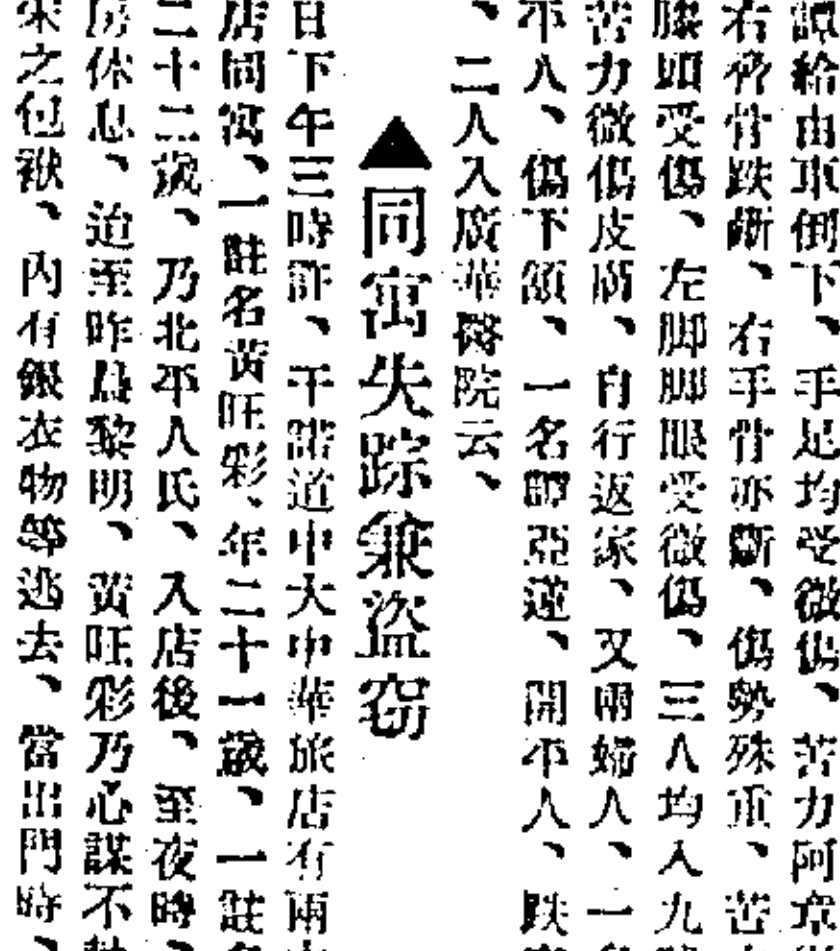 譚給由車倒下、手足均受微傷、苦力阿章
右脅骨跌斷、右手骨亦斷、傷勢殊重、苦
膝頭受傷、左脚脚眼受微傷、三人均入九
苦力微傷皮膚、自行返家、又兩婦人、一
平人、傷下頷、一名鄭亞蓮、開平人、跌
、二人入廣華醫院云、
▲同寓失踪兼盜窃
日下午三時許、干諾道中大中華旅店有兩
店同寓、一註名黃旺彩、年二十一歲、一註名
二十二歲、乃北平人氏、入店後、至夜時、
房休息、迨至昨晨黎明、黃旺彩乃心謀不軌
宋之包袱、內有銀衣物等逃去、當出門時、